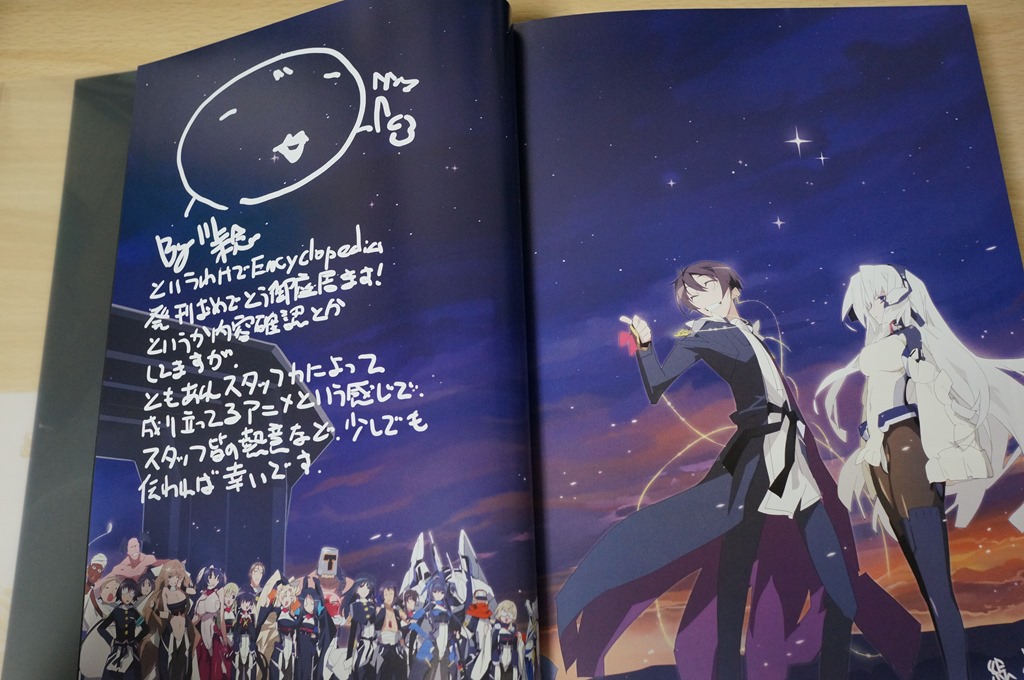 By 川稔
というわけでEncyclopedia
発刊おめでとう御座居ます!
というか内容確認とか
してますが.
ともあれスタッフ力によって
成り立ってるアニメという感じで.
スタッフ皆の熱意など.少しでも
伝われば幸いです.
T